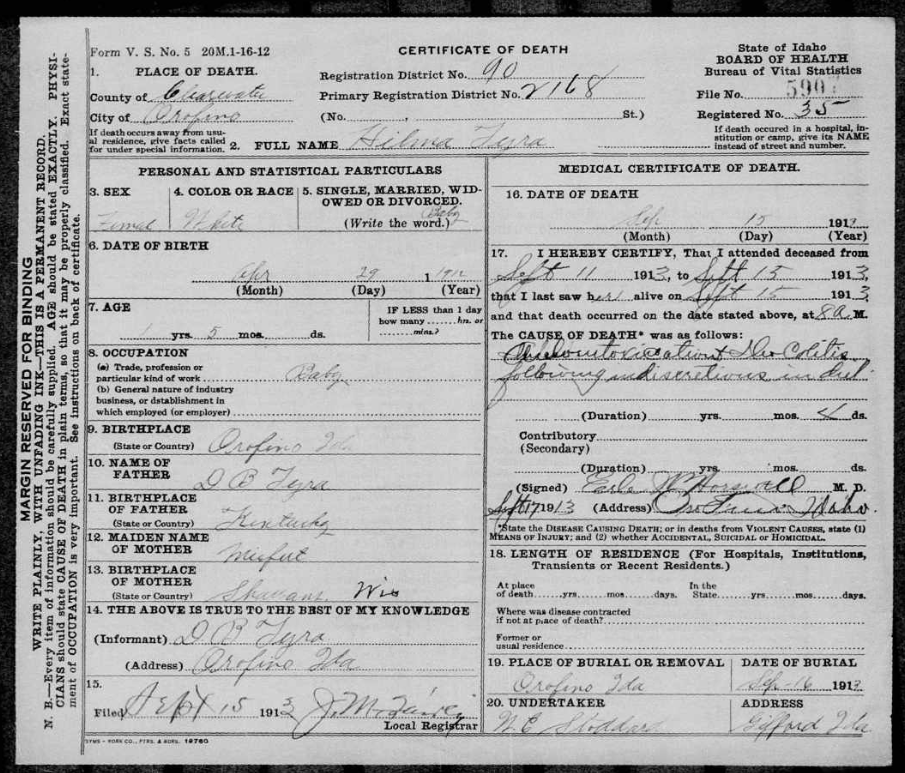 MARGIN RESERVED FOR BINDING
WRITE PLAINLY, WITH UNFADING INK—THIS IS A PERMANENT RECORD.
N. B.—Every item of information should be carefully supplied. AGE should be stated EXACTLY. PHYSI-
CIANS should state CAUSE OF DEATH in plain terms, so that it may be properly classified. Exact state-
ment of OCCUPATION is very important. See instructions on back of certificate.
Form V. S. No. 5 20M.1-16-12
CERTIFICATE OF DEATH
State of Idaho
BOARD OF HEALTH
Bureau of Vital Statistics
1. PLACE OF DEATH.
Registration District No. 90
County of Clearwater
Primary Registration District No. 2168
File No.
City of Orofino
(No. , St.)
Registered No. 35
If death occurs away from usu-
al residence, give facts called
for under special information.
2. FULL NAME Hilma
If death occured in a hospital, in-
stitution or camp, give its NAME
instead of street and number.
PERSONAL AND STATISTICAL PARTICULARS
3. SEX
Femal
4. COLOR OR RACE
White
5. SINGLE, MARRIED, WID-
OWED OR DIVORCED.
(Write the word.) Baby
6. DATE OF BIRTH
Apr 29 1 1912
(Month) (Day) (Year)
7. AGE
1 yrs. 5 mos. ds.
IF LESS than 1 day
how many hrs. or
mins.?
8. OCCUPATION
(a) Trade, profession or
particular kind of work Baby
(b) General nature of industry
business, or dstablishment in
which employed (or employer)
9. BIRTHPLACE
(State or Country) Orofino Ida
10. NAME OF
FATHER D B
11. BIRTHPLACE
OF FATHER
(State or Country) Kentucky
12. MAIDEN NAME
OF MOTHER
13. BIRTHPLACE
OF MOTHER
(State or Country) Wis
14. THE ABOVE IS TRUE TO THE BEST OF MY KNOWLEDGE
(Informant) D B
(Address) Orofino Ida
15.
Filed Sept 15 1913
Local Registrar
SYMS-YORK CO., PTRS. & BDRS. 19760
MEDICAL CERTIFICATE OF DEATH.
16. DATE OF DEATH
Sep 15 1913
(Month) (Day) (Year)
17. I HEREBY CERTIFY, That I attended deceased from
Sept 11 1913, to Sept 15 1913,
that I last saw her alive on Sept 15 1913,
and that death occurred on the date stated above, at 8 a. M.
The CAUSE OF DEATH* was as follows:
Colitis
following indiscretions in
(Duration) yrs. mos. 4 ds.
Contributory
(Secondary)
(Duration) yrs. mos. ds.
(Signed) Earle W Horswell M. D.
Sept 17 1913 (Address) Orofino Idaho.
*State the DISEASE CAUSING DEATH; or in deaths from VIOLENT CAUSES, state (1)
MEANS OF INJURY; and (2) whether ACCIDENTAL, SUICIDAL or HOMICIDAL.
18. LENGTH OF RESIDENCE (For Hospitals, Institutions,
Transients or Recent Residents.)
At place
of death yrs. mos. days.
In the
State yrs. mos. days.
Where was disease contracted
if not at place of death?
Former or
usual residence
19. PLACE OF BURIAL OR REMOVAL
Orofino Ida
DATE OF BURIAL
Sep-16 1913
20. UNDERTAKER
W. E. Stoddard
ADDRESS
Gifford Ida